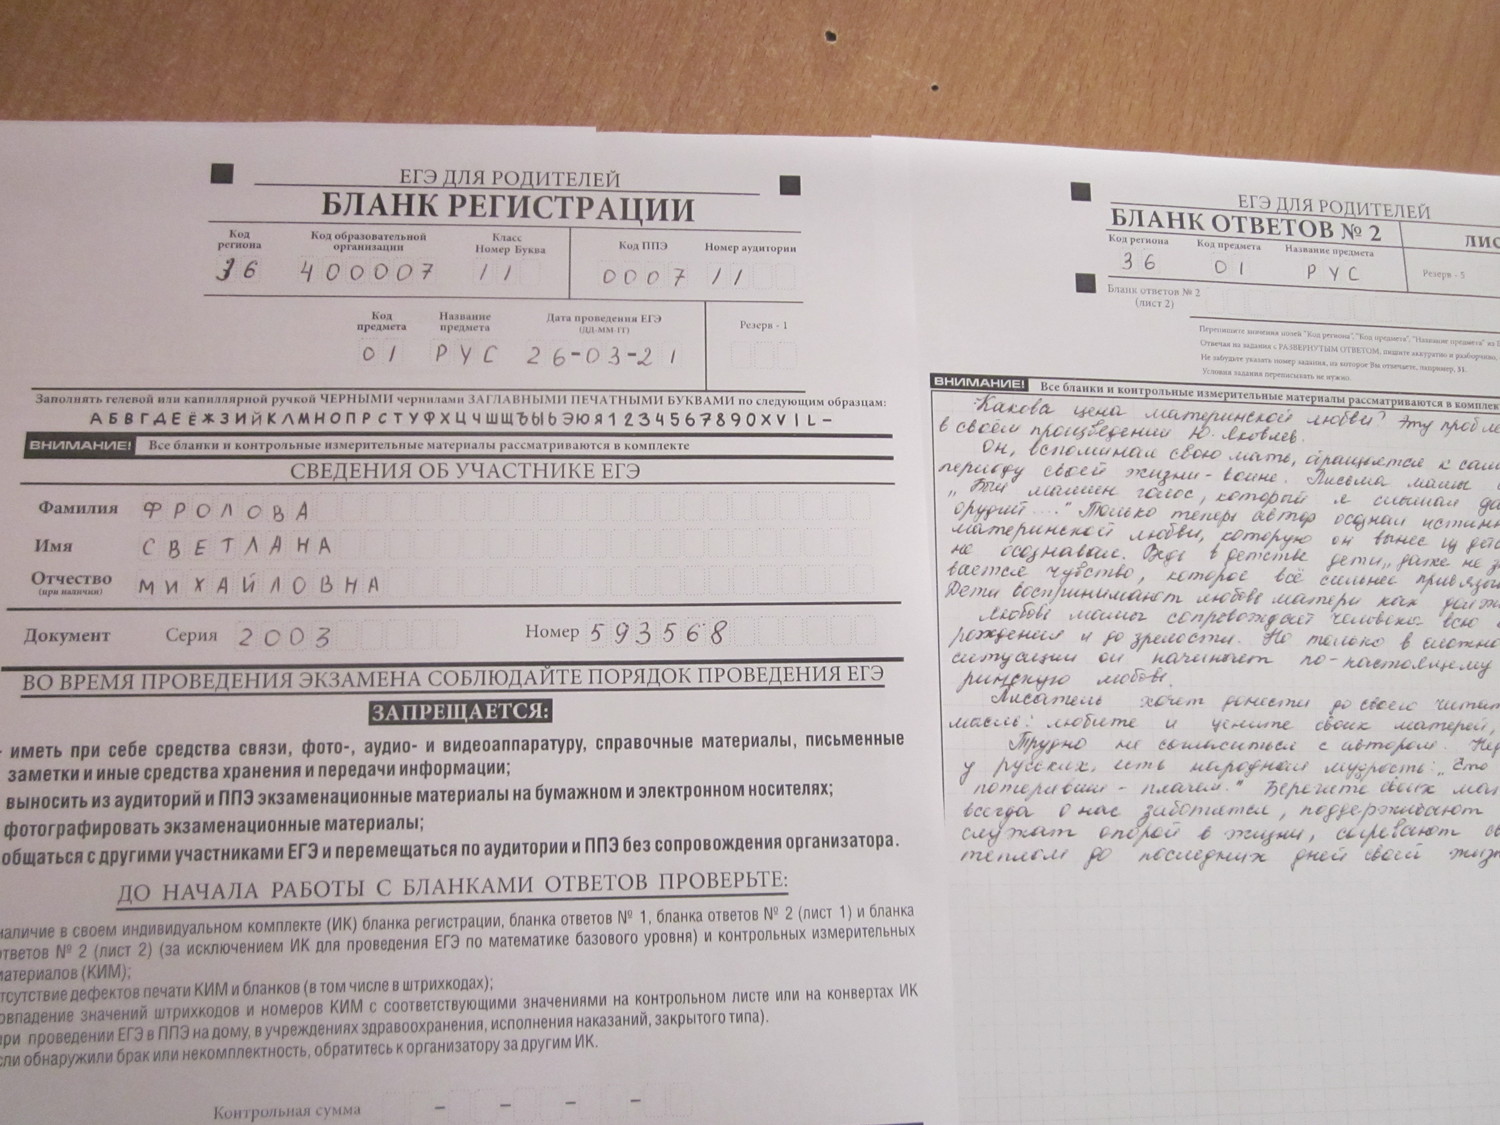 ЕГЭ ДЛЯ РОДИТЕЛЕЙ
БЛАНК РЕГИСТРАЦИИ
Код региона
Код образовательной организации
Класс
Номер Буква
Код ППЭ
Номер аудитории
36 400007 11 0007 11
Код предмета
Название предмета
Дата проведения ЕГЭ
(ДД-ММ-ГГ)
Резерв - 1
01 РУС 26-03-21
Заполнять гелевой или капиллярной ручкой ЧЕРНЫМИ чернилами ЗАГЛАВНЫМИ ПЕЧАТНЫМИ БУКВАМИ по следующим образцам:
АБВГДЕЁЖЗИЙКЛМНОПРСТУФХЦЧШЩЪЫЬЭЮЯ1234567890XVIL-
ВНИМАНИЕ! Все бланки и контрольные измерительные материалы рассматриваются в комплекте
СВЕДЕНИЯ ОБ УЧАСТНИКЕ ЕГЭ
Фамилия ФРОЛОВА
Имя СВЕТЛАНА
Отчество МИХАЙЛОВНА
(при наличии)
Документ Серия 2003 Номер 593568
ВО ВРЕМЯ ПРОВЕДЕНИЯ ЭКЗАМЕНА СОБЛЮДАЙТЕ ПОРЯДОК ПРОВЕДЕНИЯ ЕГЭ
ЗАПРЕЩАЕТСЯ:
- иметь при себе средства связи, фото-, аудио- и видеоаппаратуру, справочные материалы, письменные
заметки и иные средства хранения и передачи информации;
выносить из аудиторий и ППЭ экзаменационные материалы на бумажном и электронном носителях;
фотографировать экзаменационные материалы;
общаться с другими участниками ЕГЭ и перемещаться по аудитории и ППЭ без сопровождения организатора.
ДО НАЧАЛА РАБОТЫ С БЛАНКАМИ ОТВЕТОВ ПРОВЕРЬТЕ:
наличие в своем индивидуальном комплекте (ИК) бланка регистрации, бланка ответов № 1, бланка ответов № 2 (лист 1) и бланка
ответов № 2 (лист 2) (за исключением ИК для проведения ЕГЭ по математике базового уровня) и контрольных измерительных
материалов (КИМ);
тсутствие дефектов печати КИМ и бланков (в том числе в штрихкодах);
овпадение значений штрихкодов и номеров КИМ с соответствующими значениями на контрольном листе или на конвертах ИК
при проведении ЕГЭ в ППЭ на дому, в учреждениях здравоохранения, исполнения наказаний, закрытого типа).
сли обнаружили брак или некомплектность, обратитесь к организатору за другим ИК.
Контрольная сумма - - - -
ЕГЭ ДЛЯ РОДИТЕЛЕЙ
БЛАНК ОТВЕТОВ № 2 ЛИС
Код региона Код предмета Название предмета
36 01 РУС
Резерв - 5
Бланк ответов № 2
(лист 2)
Перепишите значения полей "Код региона", "Код предмета", "Название предмета" из
Отвечая на задания с РАЗВЕРНУТЫМ ОТВЕТОМ, пишите аккуратно и разборчиво,
Не забудьте указать номер задания, на которое Вы отвечаете, например, 31.
Условия задания переписывать не нужно.
ВНИМАНИЕ! Все бланки и контрольные измерительные материалы рассматриваются в комплек
Какова цена материнской любви? Эту пробле
в своём произведении Ю. Яковлев.
Он, вспоминая свою мать, обращается к сам
периоду своей жизни - войне. Письма мамы
„Был мамин голос, который я слышал да
орудий...." Только теперь автор осознал истин
материнской любви, которую он вынес из дет
не осознавая. Ведь в детстве дети, даже не
вается чувство, которое всё сильнее привязы
Дети воспринимают любовь матери как долж
Любовь мамы сопровождает человека всю
рождения и до зрелости. Но только в сложно
ситуации он начинает по-настоящему
ринскую любовь.
Писатель хочет донести до своего читат
мысль: любите и цените своих матерей,
Трудно не согласиться с автором.
у русских, есть народная мудрость: „
потерявши - плачем." Берегите своих ма
всегда о нас заботятся, поддерживают
служат опорой в жизни, согревают
теплом до последних дней своей жиз